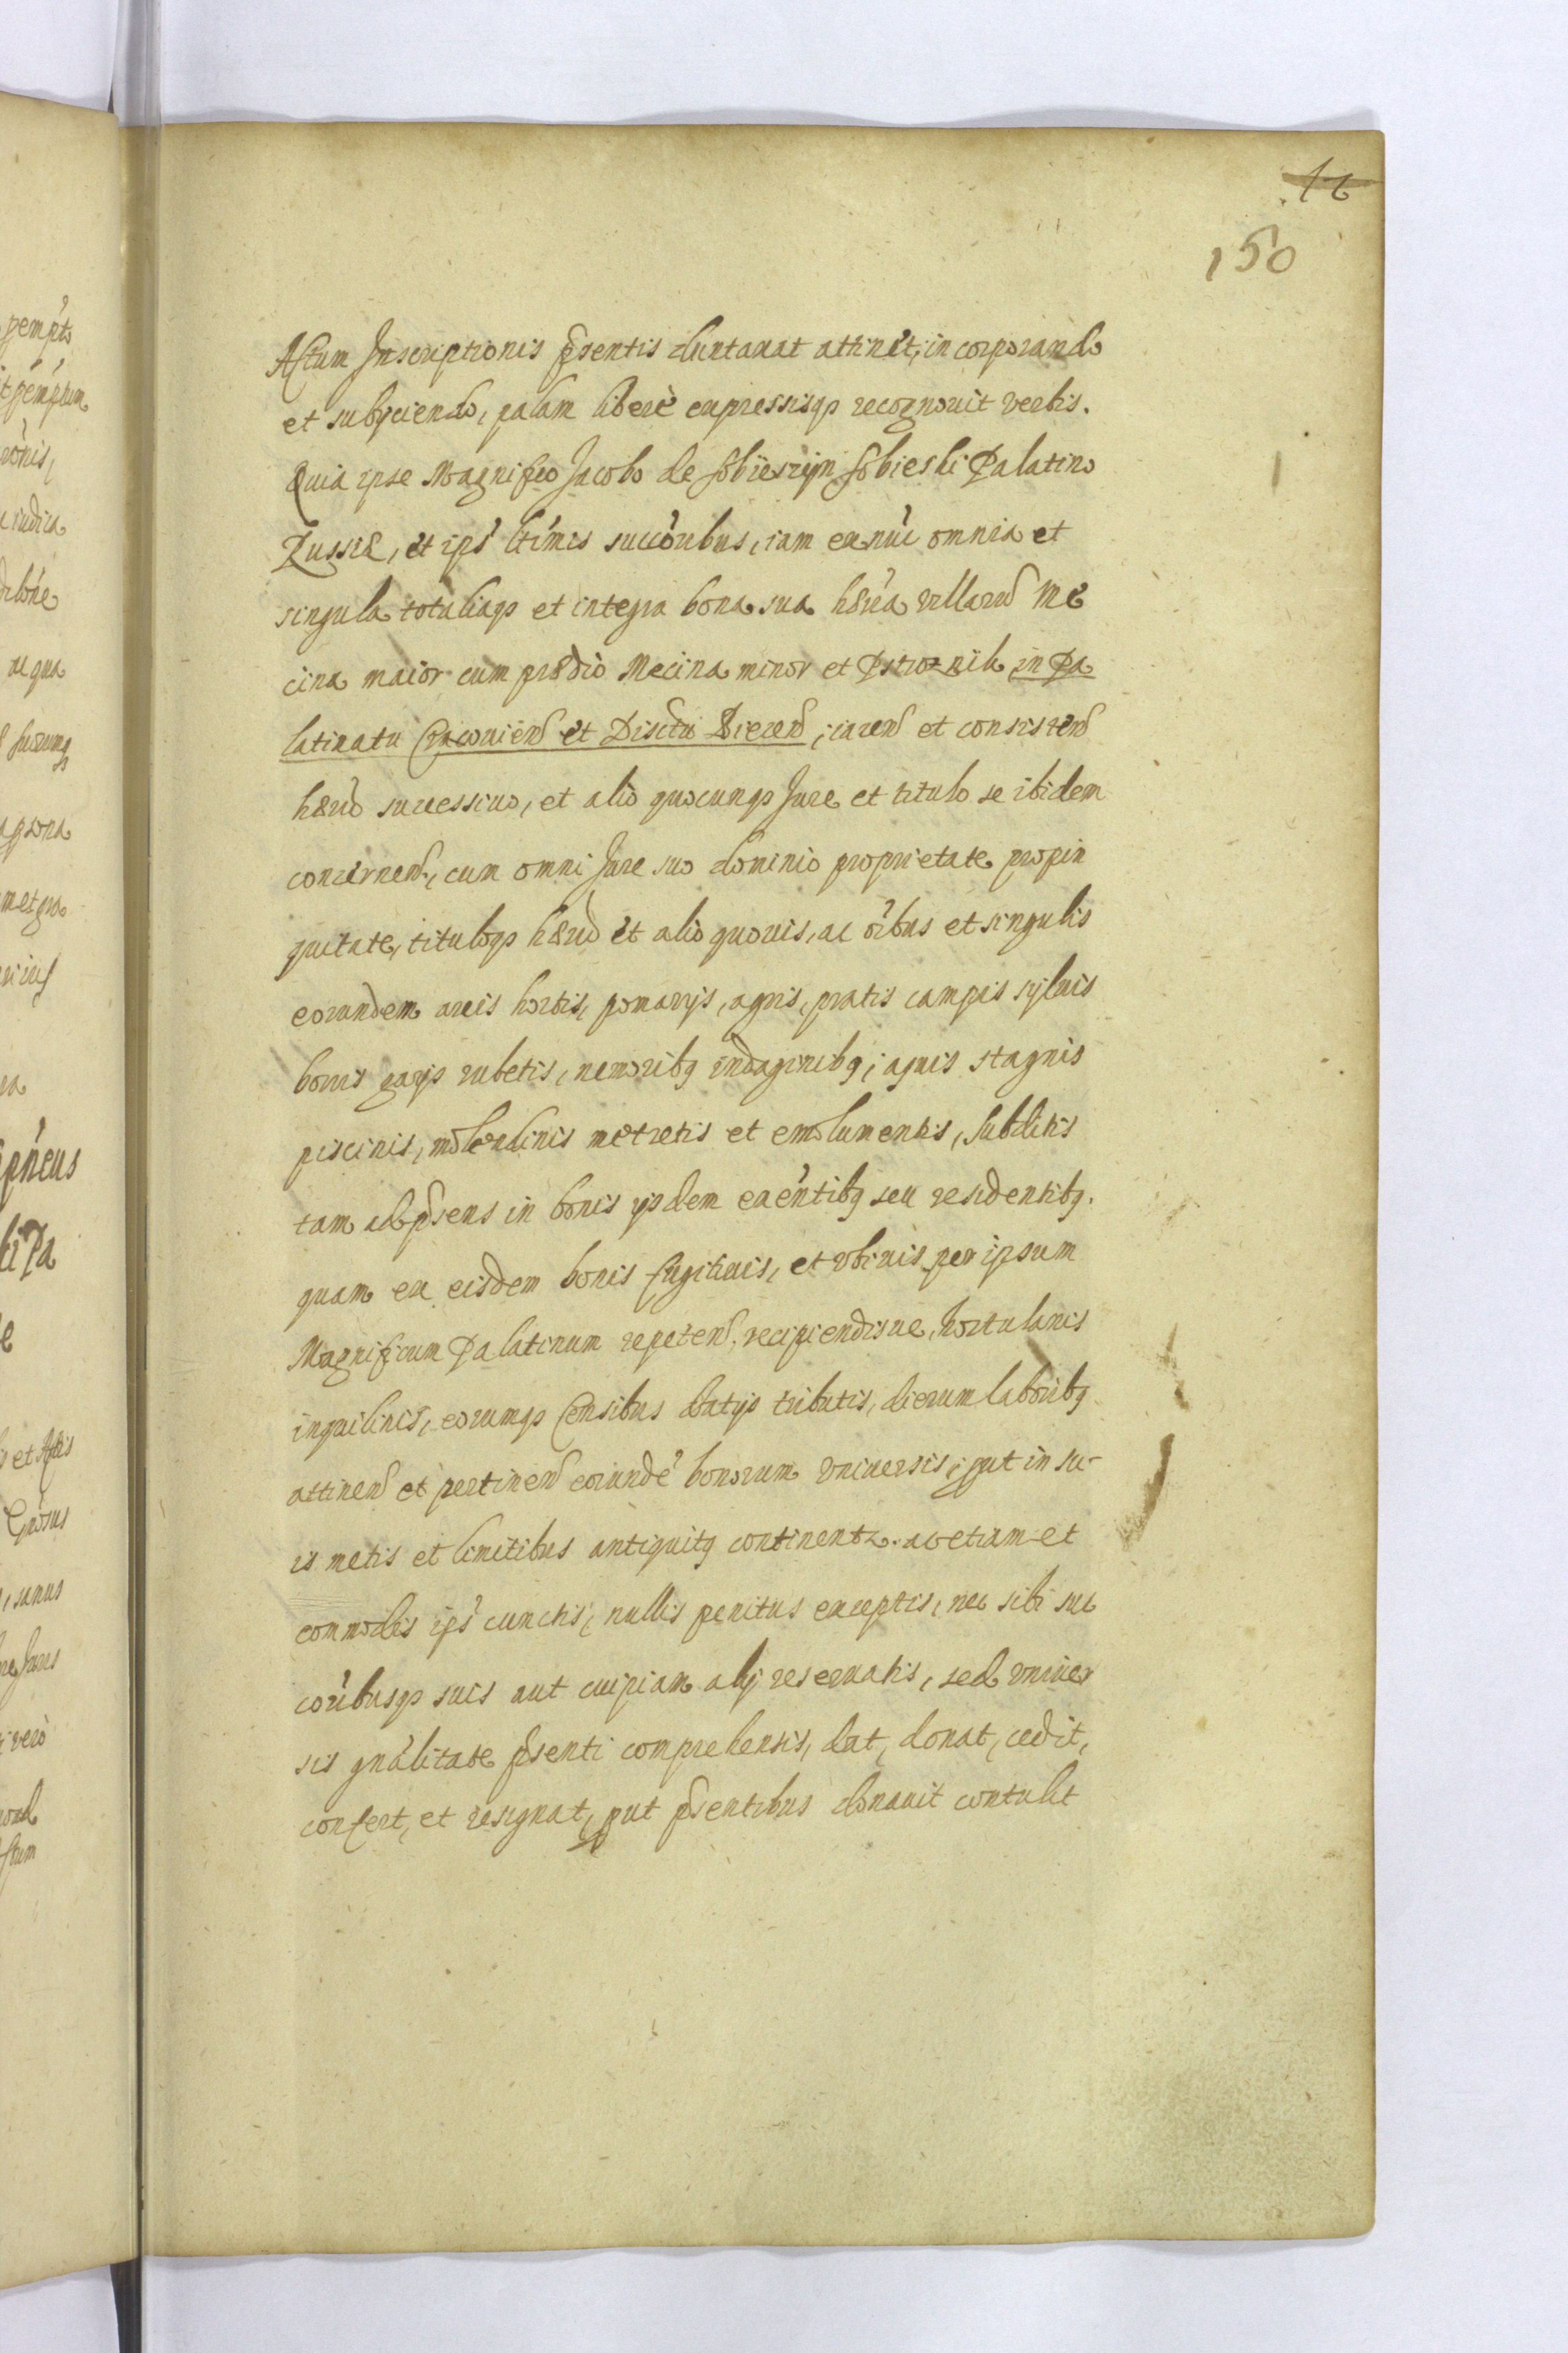 150
Actum Inscriptionis p̃sentis duntaxat attinet, incorporando
et subijciendo, palam liberè expressisq̨ recognouit verbis.
Quia ipse Magnifico Jacobo de Sobieszyn Sobieski Palatino
Russiæ, et ips' ltimis succoribus, iam ex nuc omnia et
singula totaliaq̨ et integra bona sua hæria villarũ Me
cina maior cum prædio Mecina minor et Pstroznik, in Pa
latinatu Cracouieñ et Disctu Bieceñ, iaceñ et consisteñ
hærio successiuo, et alio quocunq̨ Jure et titulo se ibidem
concerneñ, cum omni Jure suo dominio proprietate propin
quitate, tituloq̨ hærio et alio quouis, ac oibus et singulis
eorundem areis hortis, pomarijs, agris, pratis campis syluis
borris gaijs rubetis, nemoribq indaginibq, aquis stagnis
piscinis, molendinis metretis et emolumentis, Subditis
tam ad p̃sens in bonis ijsdem exentibq seu residentibq.
quam ex eisdem bonis fugitiuis, et vbiuis per ipsum
Magnificum Palatinum repeteñ, recipiendisue, hortulanis
inquilinis, eorumq̨ Censibus datijs tributis, dierum laboribq
attineñ et pertineñ eorundé bonorum vniuersis, put in su-
is metis et limitibus antiquitq continentr. ac etiam et
commodis ips' cunctis, nullis penitus exceptis, nec sibi suc
coribusq̨ suis aut cuipiam alij reseruatis, sed vniuer
sis gnalitate p̃senti comprehensis, dat, donat, cedit,
confert, et resignat, put p̃sentibus donauit contulit